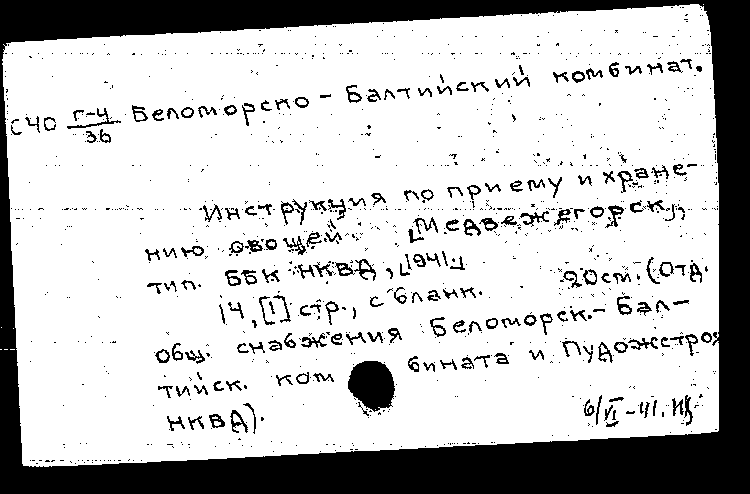 СЧО Г-Ч/36 Беломорско-Балтийский комбинат.
Инструкция по приему и хране-
нию овощей. [Медвежегорск],
тип. ББК НКВД, [1941.]
14, [1] стр., с бланк. 20 см. (Отд.
общ. снабжения Беломорск.-Бал-
тийск. комбината и Пудожстроя
НКВД).
6/VI-41.